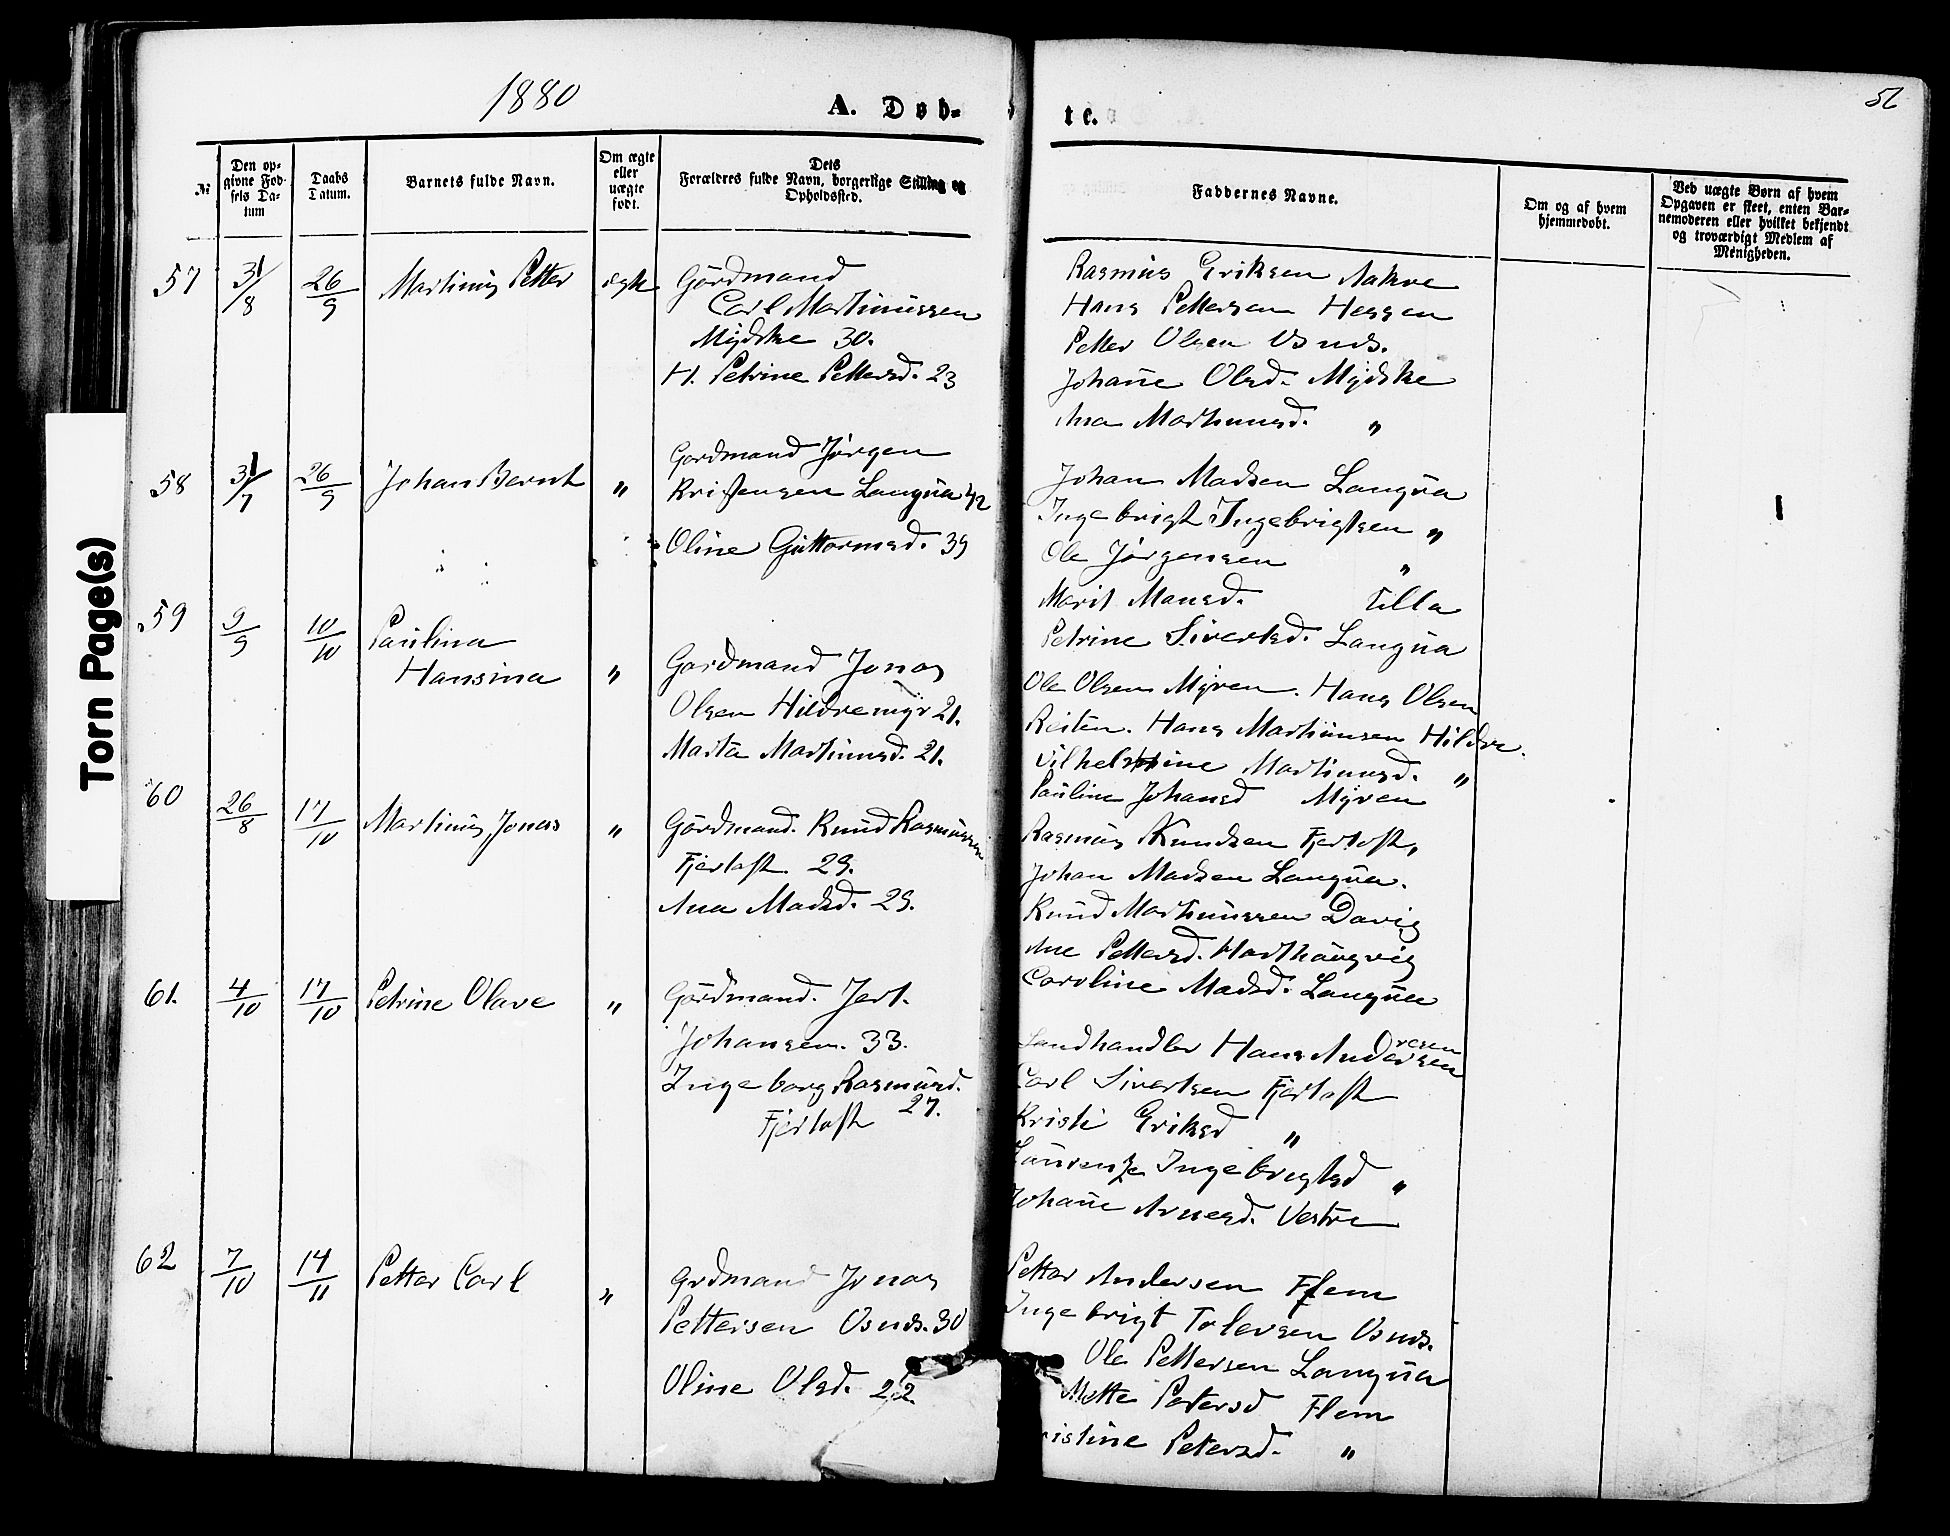 1880
A. Døb-
te.
56
Torn Page(s)
№
Den op-
givne Fød-
sels Da-
tum
Daabs
Datum.
Barnets fulde Navn.
Om ægte
eller
uægte
født.
Dets
Forældres fulde Navn, borgerlige Stilling og
Opholdssted.
Faddernes Navne.
Om og af hvem
hjemmedøbt.
Ved uægte Børn af hvem
Opgaven er skeet, enten Bar-
nemoderen eller hvilket bekjendt
og troværdigt Medlem af
Menigheden.
57
31/8
26/9
Martinus Petter
ægte
Gardmand
Carl Martinussen
Mydske 30.
H. Petrine Pettersd. 23
Rasmus Eriksen Aakre
Hans Pettersen Hessen
Petter Olsen Usnds.
Johanne Olsd. Mydske
Ana Martinusd. "
58
31/7
26/9
Johan Bernt
"
Gardmand Jørgen
Kristensen Langva 42
Oline Guttormsd. 39
Johan Madsen Langva
Ingebrigt Ingebrigtsen "
Ole Jørgensen "
Marit Mansd. Ulla
Petrine Sivertsd. Langva
59
9/9
10/10
Paulina
Hansina
"
Gardmand Jonas
Olsen Hildremyr 21.
Marta Martinusd. 21.
Ole Olsen Myren. Hans Olsen
Reiten. Hans Martinusen Hildre.
Vilhelmine Martinusd. "
Pauline Johansd Myren
60
26/8
17/10
Martinus Jonas
"
Gardmand. Knud Rasmussen
Fjertoft 29.
Ana Madsd. 29.
Rasmus Knudsen Fjertoft,
Johan Madsen Langva.
Knud Martinussen Davig
Ane Pettersd. Harthaugvig
Caroline Madsd. Langva
61.
4/10
17/10
Petrine Olave
"
Gardmand. Jert.
Johansen. 33.
Ingeborg Rasmusd.
27.
Fjertoft
Landhandler Hans Andersen
resen
Carl Sivertsen Fjertoft
Kristi Eriksd "
Laurense Ingebrigtsd "
Johanne Arnesd. Vestre
62
7/10
14/11
Petter Carl
"
Grdmand Jonas
Pettersen Usnds. 30
Oline Olsd. 22
Petter Andersen Flem
Ingebrigt Tolevsen Usnds.
Ole Pettersen Langva
Mette Petersd Flem
ristine Petersd. "